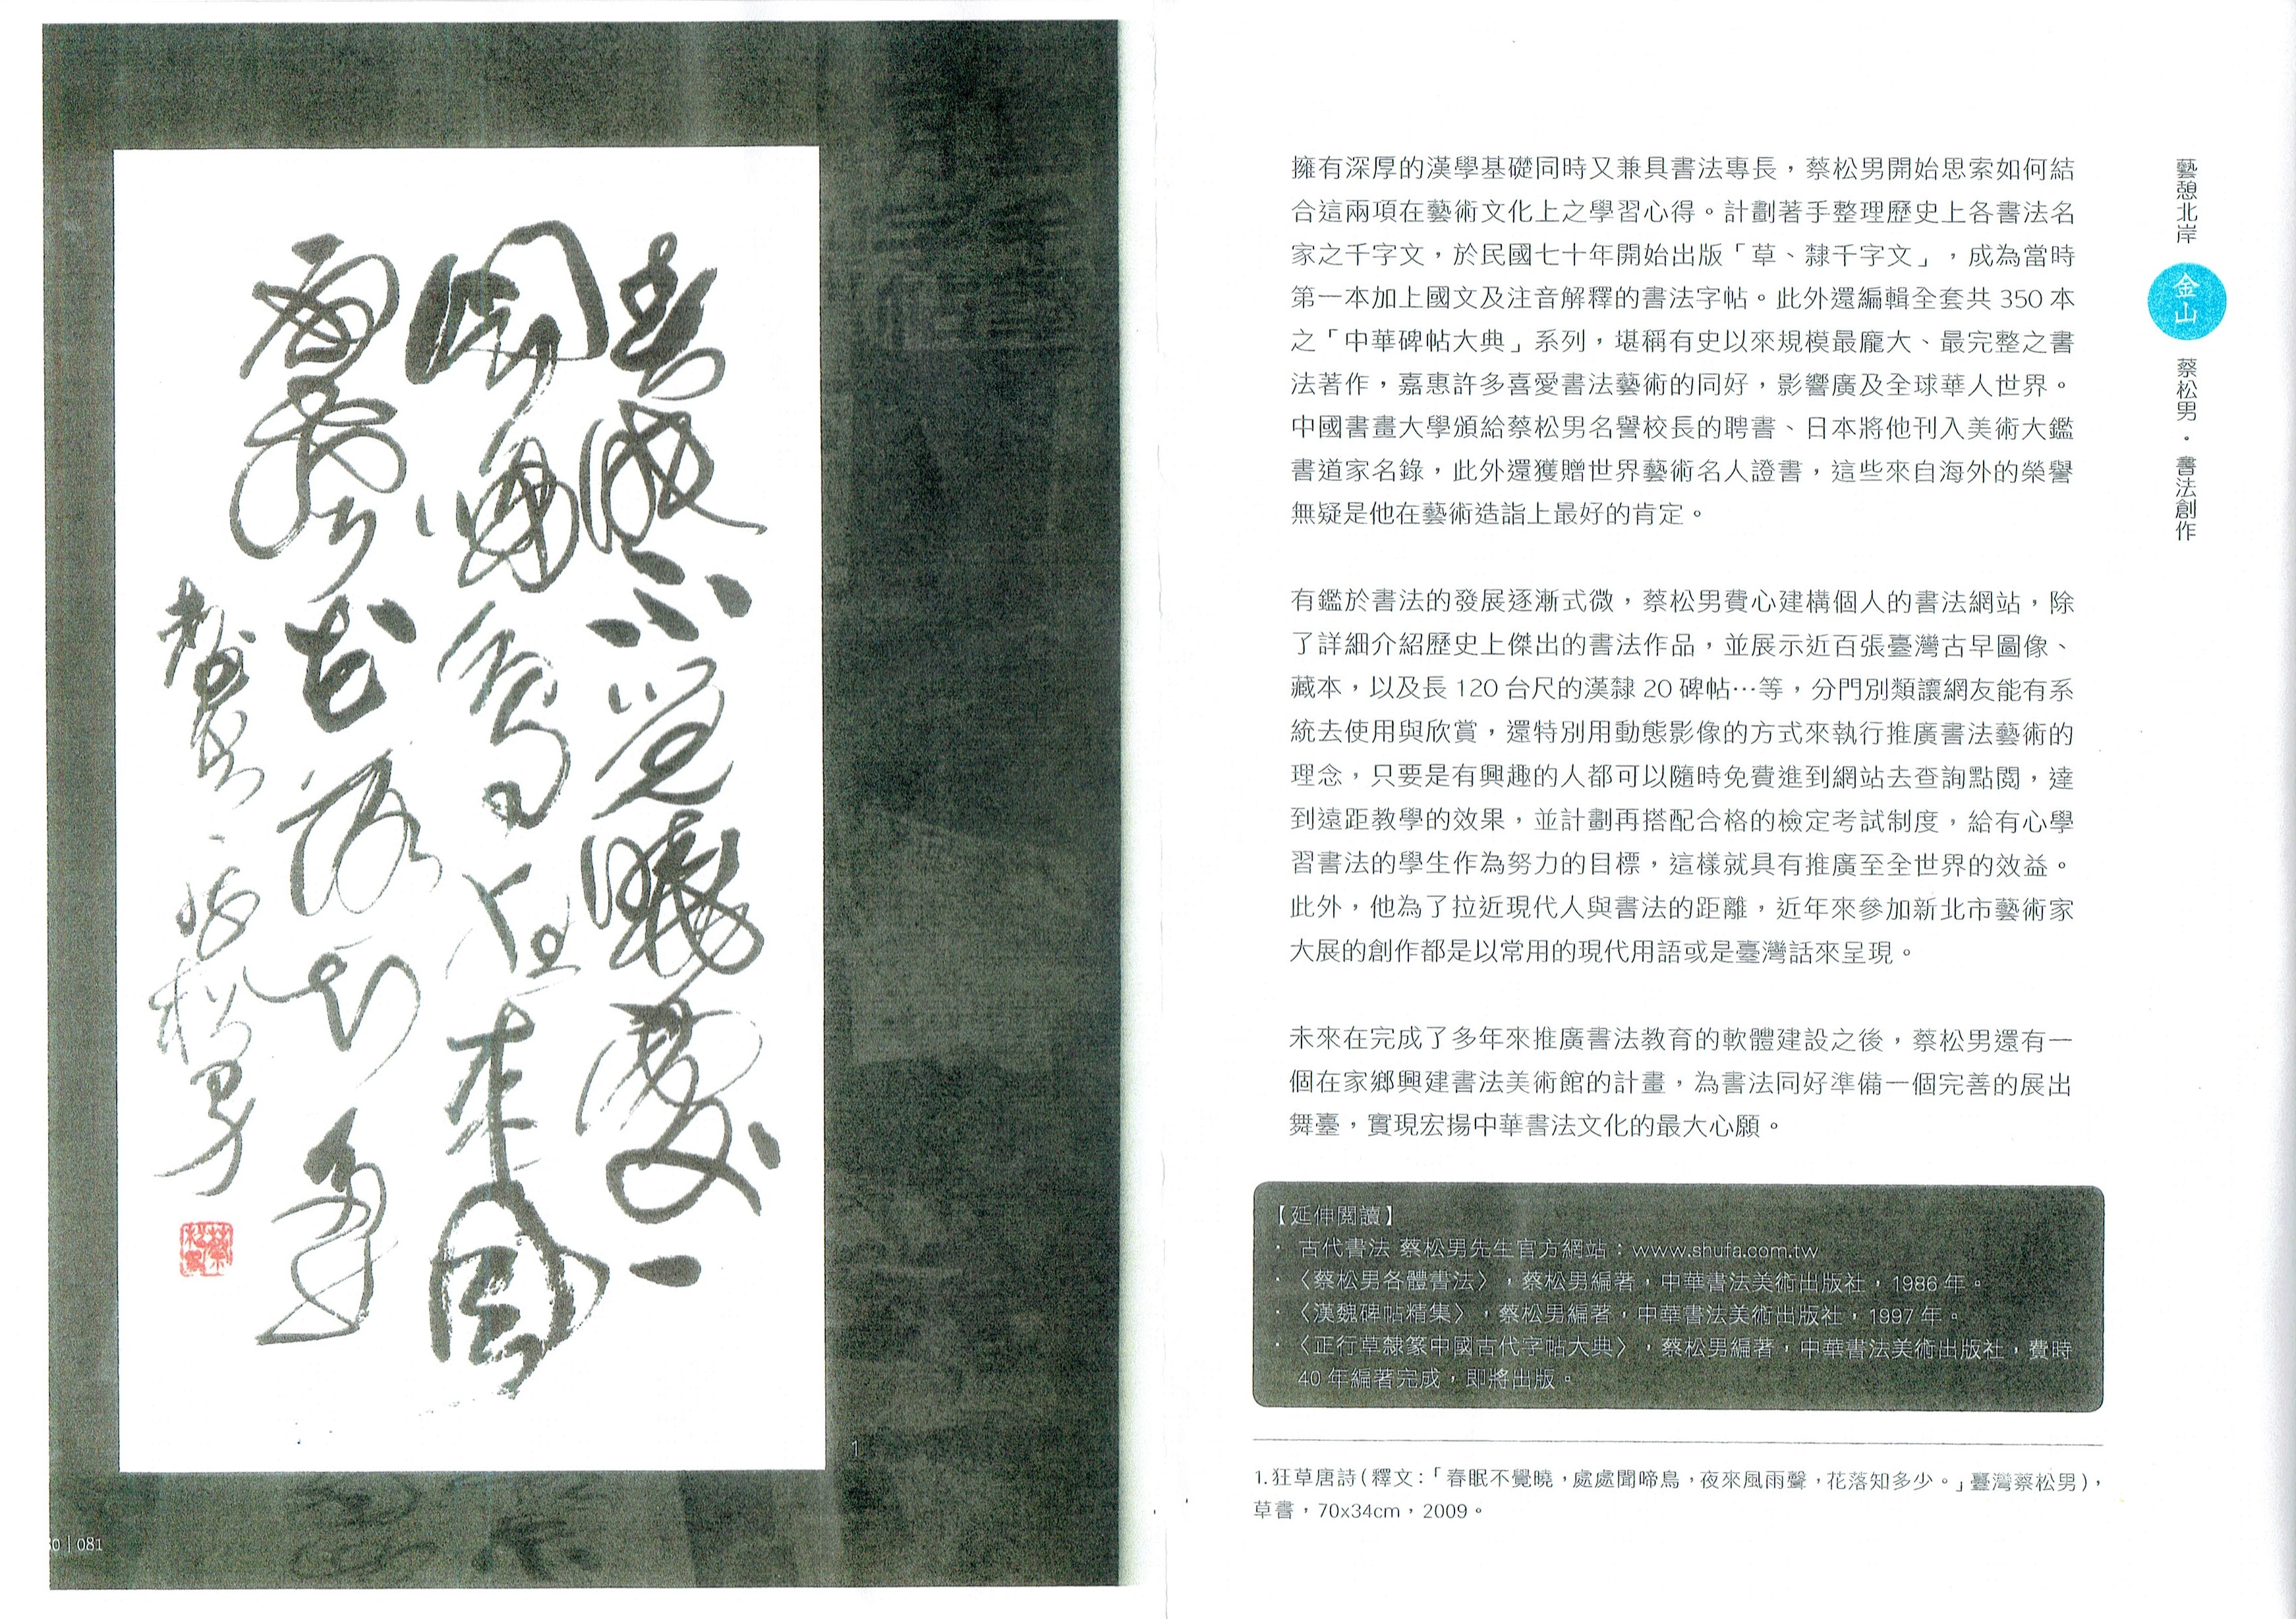 春眠不覺曉處々
聞啼鳥夜來風
雨聲花落知多少
臺灣蔡松男
1
0 | 081
藝憩北岸 金山 蔡松男・書法創作
擁有深厚的漢學基礎同時又兼具書法專長，蔡松男開始思索如何結
合這兩項在藝術文化上之學習心得。計劃著手整理歷史上各書法名
家之千字文，於民國七十年開始出版「草、隸千字文」，成為當時
第一本加上國文及注音解釋的書法字帖。此外還編輯全套共 350 本
之「中華碑帖大典」系列，堪稱有史以來規模最龐大、最完整之書
法著作，嘉惠許多喜愛書法藝術的同好，影響廣及全球華人世界。
中國書畫大學頒給蔡松男名譽校長的聘書、日本將他刊入美術大鑑
書道家名錄，此外還獲贈世界藝術名人證書，這些來自海外的榮譽
無疑是他在藝術造詣上最好的肯定。
有鑑於書法的發展逐漸式微，蔡松男費心建構個人的書法網站，除
了詳細介紹歷史上傑出的書法作品，並展示近百張臺灣古早圖像、
藏本，以及長 120 台尺的漢隸 20 碑帖…等，分門別類讓網友能有系
統去使用與欣賞，還特別用動態影像的方式來執行推廣書法藝術的
理念，只要是有興趣的人都可以隨時免費進到網站去查詢點閱，達
到遠距教學的效果，並計劃再搭配合格的檢定考試制度，給有心學
習書法的學生作為努力的目標，這樣就具有推廣至全世界的效益。
此外，他為了拉近現代人與書法的距離，近年來參加新北市藝術家
大展的創作都是以常用的現代用語或是臺灣話來呈現。
未來在完成了多年來推廣書法教育的軟體建設之後，蔡松男還有一
個在家鄉興建書法美術館的計畫，為書法同好準備一個完善的展出
舞臺，實現宏揚中華書法文化的最大心願。
【延伸閱讀】
· 古代書法 蔡松男先生官方網站：www.shufa.com.tw
· 〈蔡松男各體書法〉，蔡松男編著，中華書法美術出版社，1986 年。
· 〈漢魏碑帖精集〉，蔡松男編著，中華書法美術出版社，1997 年。
· 〈正行草隸篆中國古代字帖大典〉，蔡松男編著，中華書法美術出版社，費時
40 年編著完成，即將出版。
1.狂草唐詩（釋文：「春眠不覺曉，處處聞啼鳥，夜來風雨聲，花落知多少。」臺灣蔡松男），
草書，70x34cm，2009。